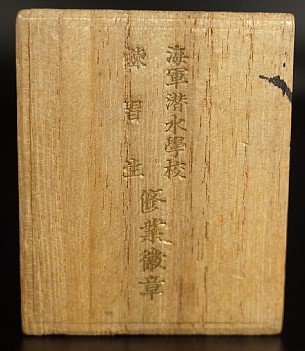 海軍潜水學校
練習生
修業徽章